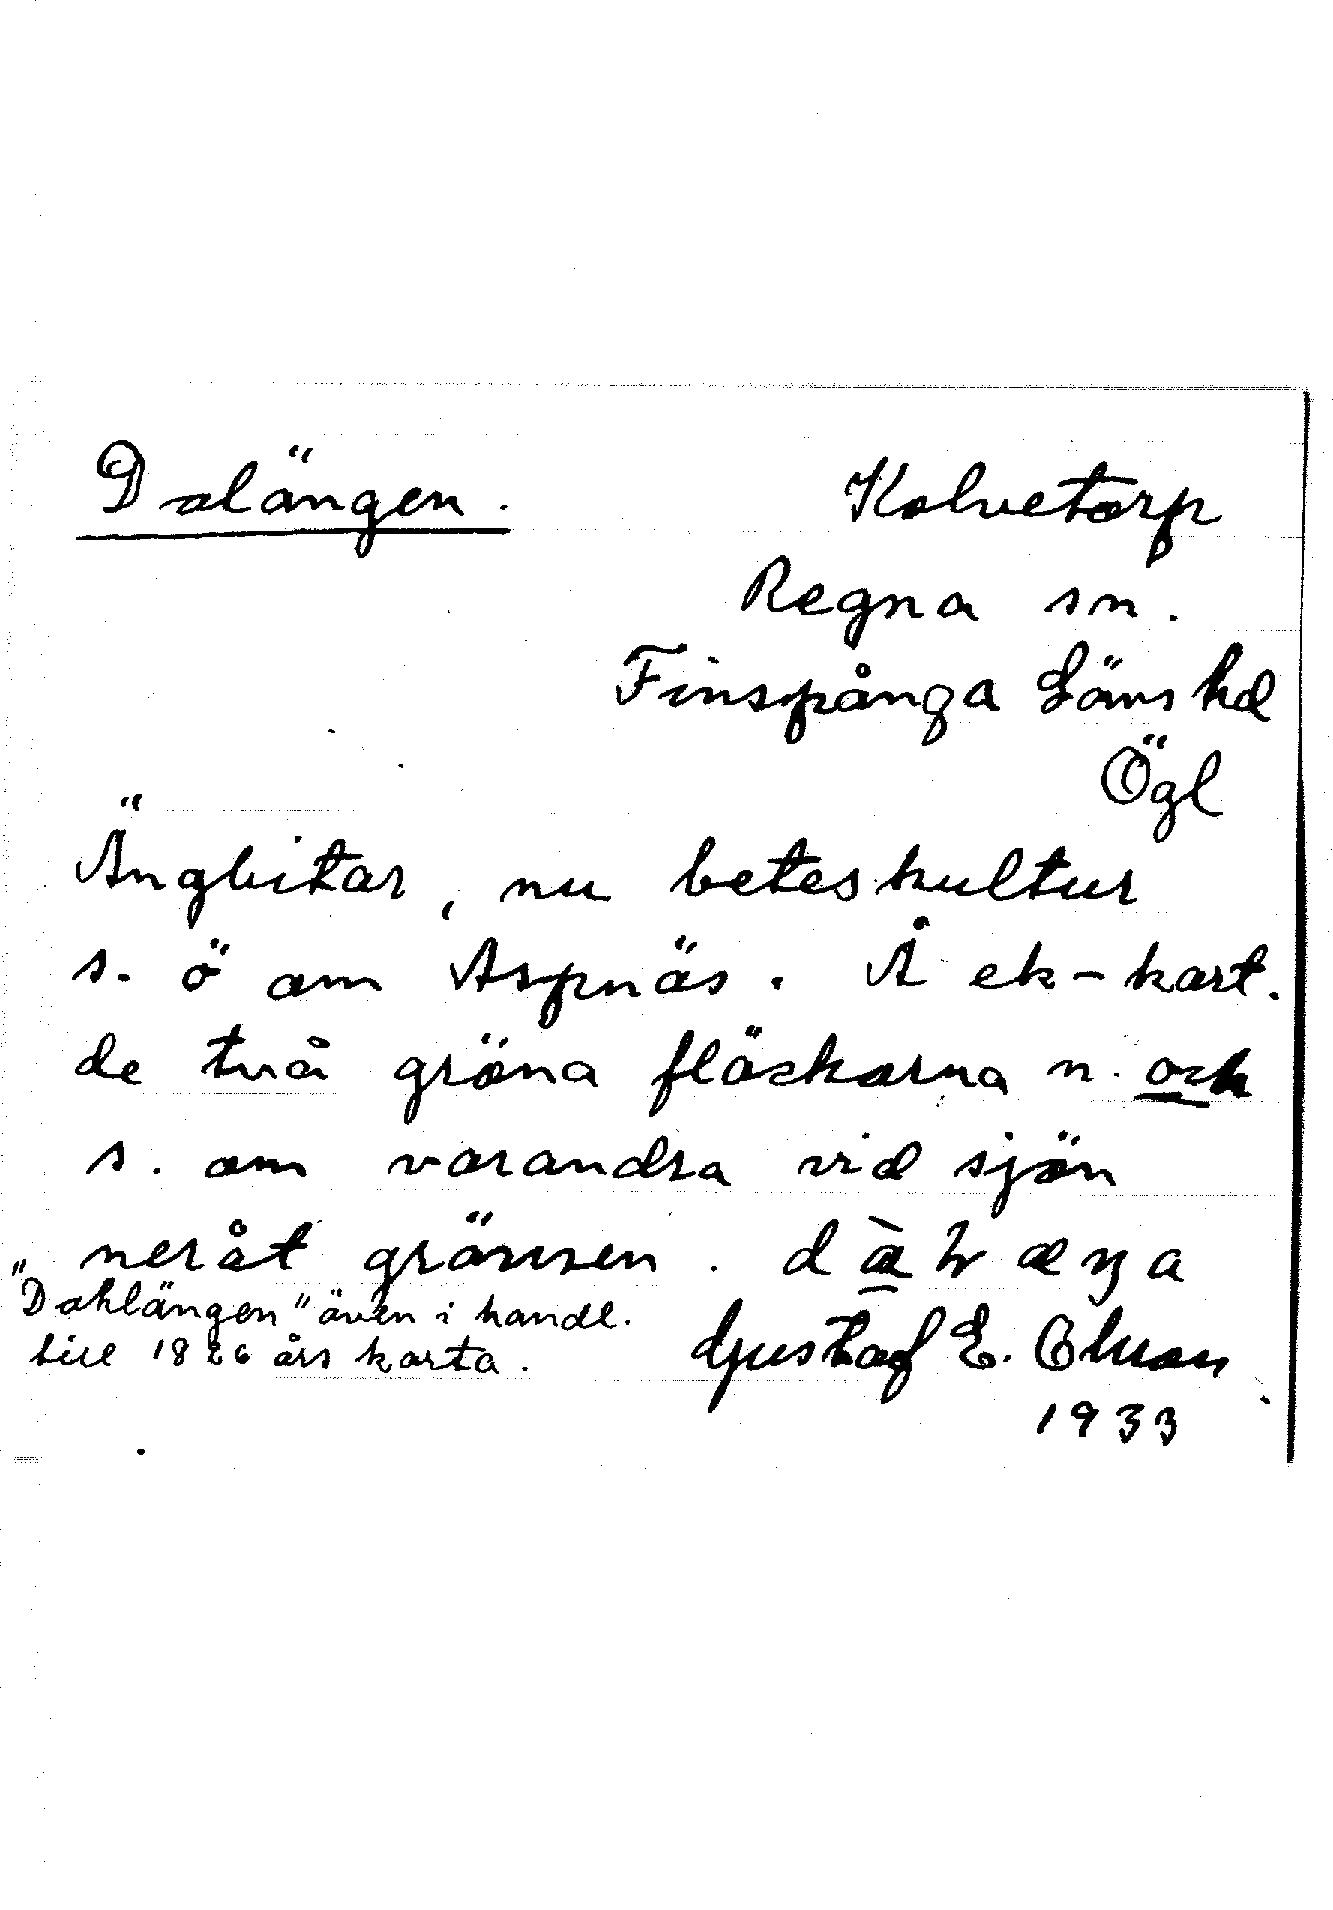 Dalängen.
Kolvetorp
Regna sn.
Finspånga Läns hd
Ögl
Ängbitar, nu beteskultur
s. ö om Aspnäs. Å ek-kart.
de två gröna fläckarna n. och
s. om varandra vid sjön
neråt gränsen.
"Dahlängen" även i handl.
till 1826 års karta.
Gustaf E. Olsson
1933